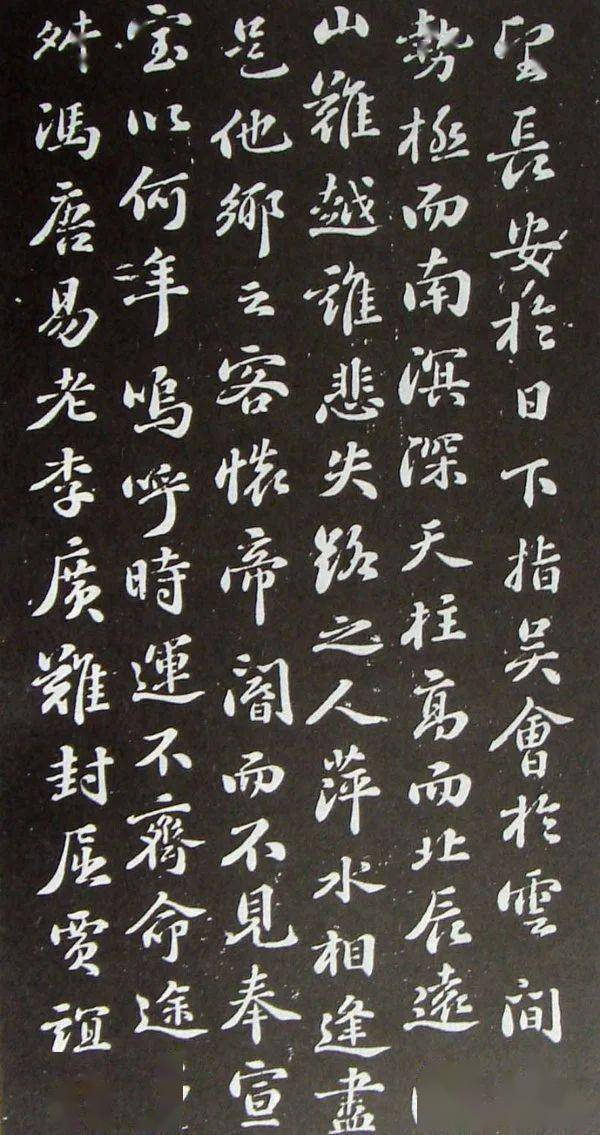 望長安於日下指吳會於雲間
勢極而南溟深天柱高而北辰遠
山難越誰悲失路之人萍水相逢盡
是他鄉之客懷帝閽而不見奉宣
室以何年嗚呼時運不齊命途
舛馮唐易老李廣難封屈賈誼